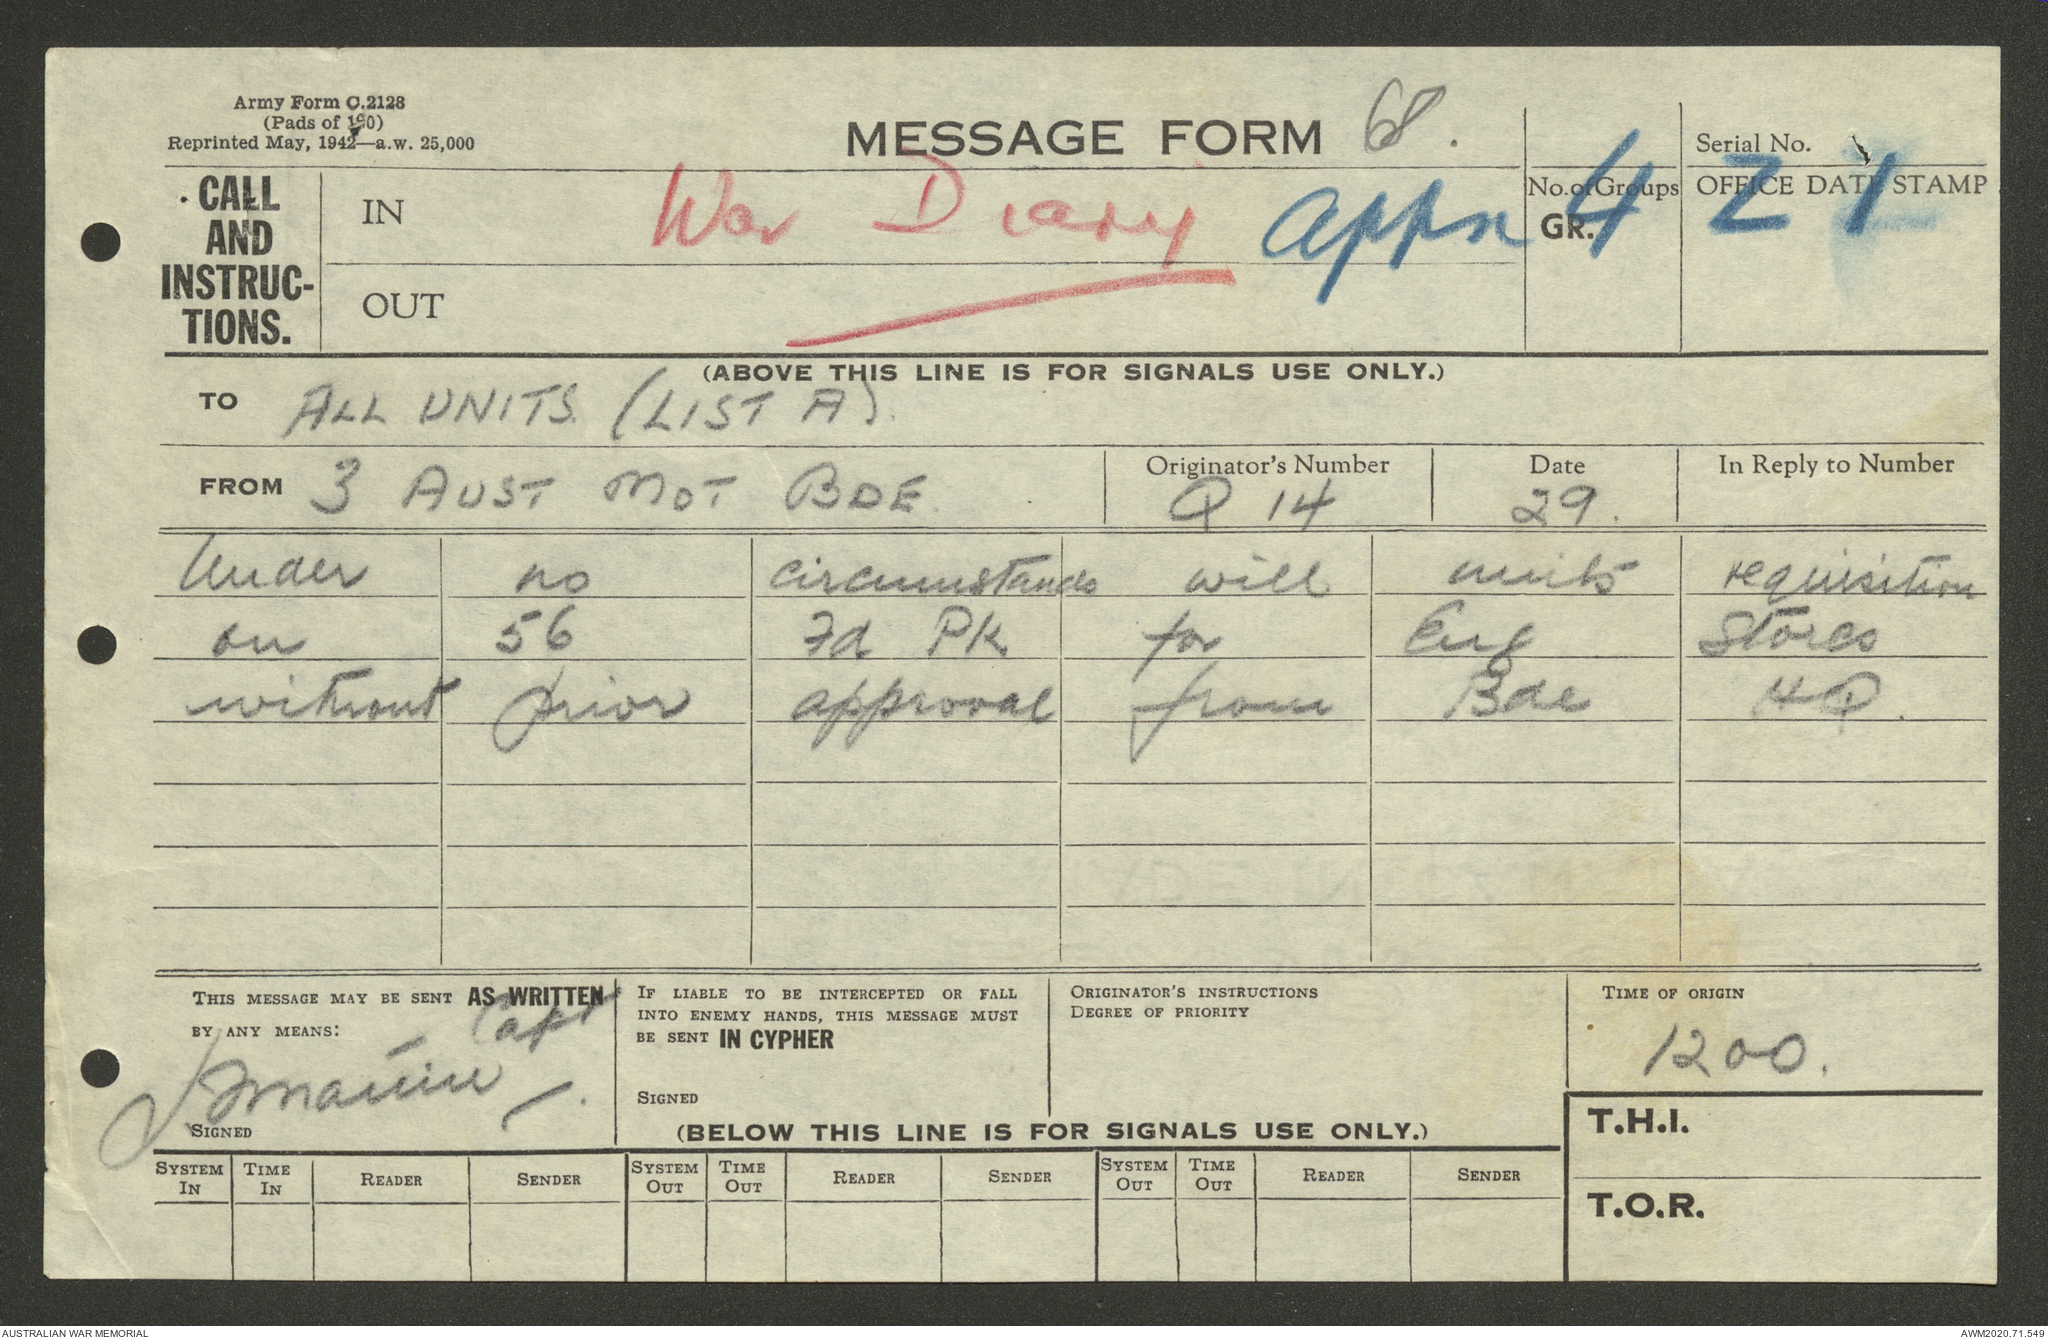 Army Form C.2128
(Pads of 100)
Reprinted May, 1942—a.w. 25,000
MESSAGE FORM 68.
Serial No.
CALL AND INSTRUC-TIONS.
IN
War Diary appx 4 Z 1
No. of Groups
GR.
OFFICE DATE STAMP
OUT
(ABOVE THIS LINE IS FOR SIGNALS USE ONLY.)
TO ALL UNITS (LIST A).
FROM 3 AUST MOT BDE.
Originator's Number
Q 14
Date
29.
In Reply to Number
Under no circumstances will units requisition
on 56 Fd PK for Eng Stores
without prior approval from Bde HQ.
THIS MESSAGE MAY BE SENT AS WRITTEN
BY ANY MEANS:
Capt
SIGNED
IF LIABLE TO BE INTERCEPTED OR FALL
INTO ENEMY HANDS, THIS MESSAGE MUST
BE SENT IN CYPHER
SIGNED
ORIGINATOR'S INSTRUCTIONS
DEGREE OF PRIORITY
TIME OF ORIGIN
1200.
(BELOW THIS LINE IS FOR SIGNALS USE ONLY.)
T.H.I.
T.O.R.
SYSTEM IN TIME IN READER SENDER SYSTEM OUT TIME OUT READER SENDER SYSTEM OUT TIME OUT READER SENDER
AUSTRALIAN WAR MEMORIAL
AWM2020.71.549